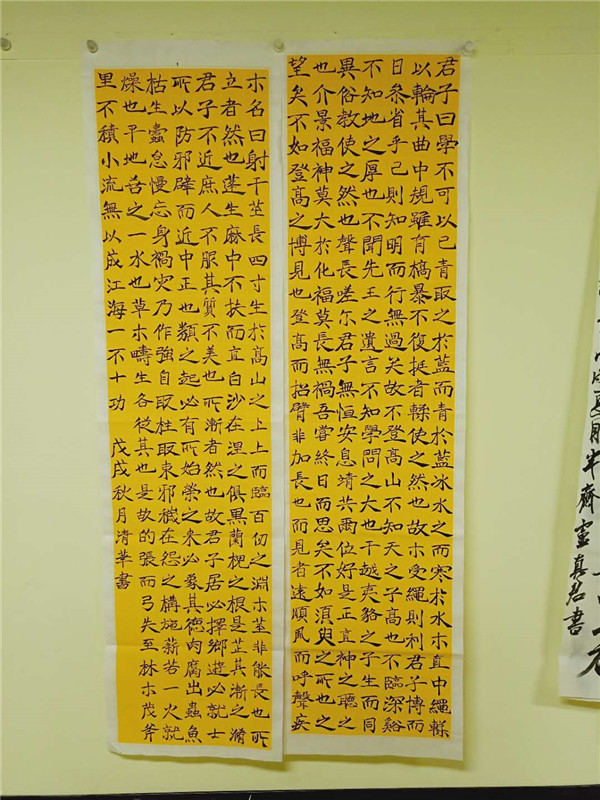 君子曰學不可以已青取之於藍而青於藍冰水之而寒於水木直中繩輮
以輪其曲中規雖有槁暴不復挺者輮使之然也故木受繩則利君子博而
日參省乎己則知明而行無過矣故不登高山不知天之高也不臨深谿
不知地之厚也不聞先王之遺言不知學問之大也干越夷貉之子生而同
異俗教使之然也聲長嗟尓君子無恒安息靖共爾位好是正直神之聽之
也介景福神莫大於化福莫長無禍吾嘗終日而思矣不如須臾之所也之
望矣不如登高之博見也登高而招臂非加長也而見者遠順風而呼聲疾
木名曰射干莖長四寸生於高山之上上而臨百仞之淵木莖非能長也所
立者然也蓬生麻中不扶而直白沙在涅之俱黑蘭槐之根是芷其漸之滫
君子不近庶人不服其質不美也所漸者然也故君子居必擇鄉遊必就士
所以防邪辟而近中正也類之起必有所始榮之来必象其德肉腐出蟲魚
枯生蠹怠慢忘身禍灾乃作強自取柱取束邪穢在怨之構施薪若一火就
燥也平地善之一水也草木疇生各從其也是故的張而弓矢至林木茂斧
里不積小流無以成江海一不十功 戊戌秋月清華書